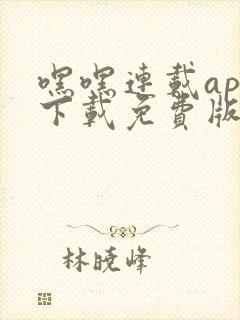 嘿嘿連載ap
下載免費版
林曉峰